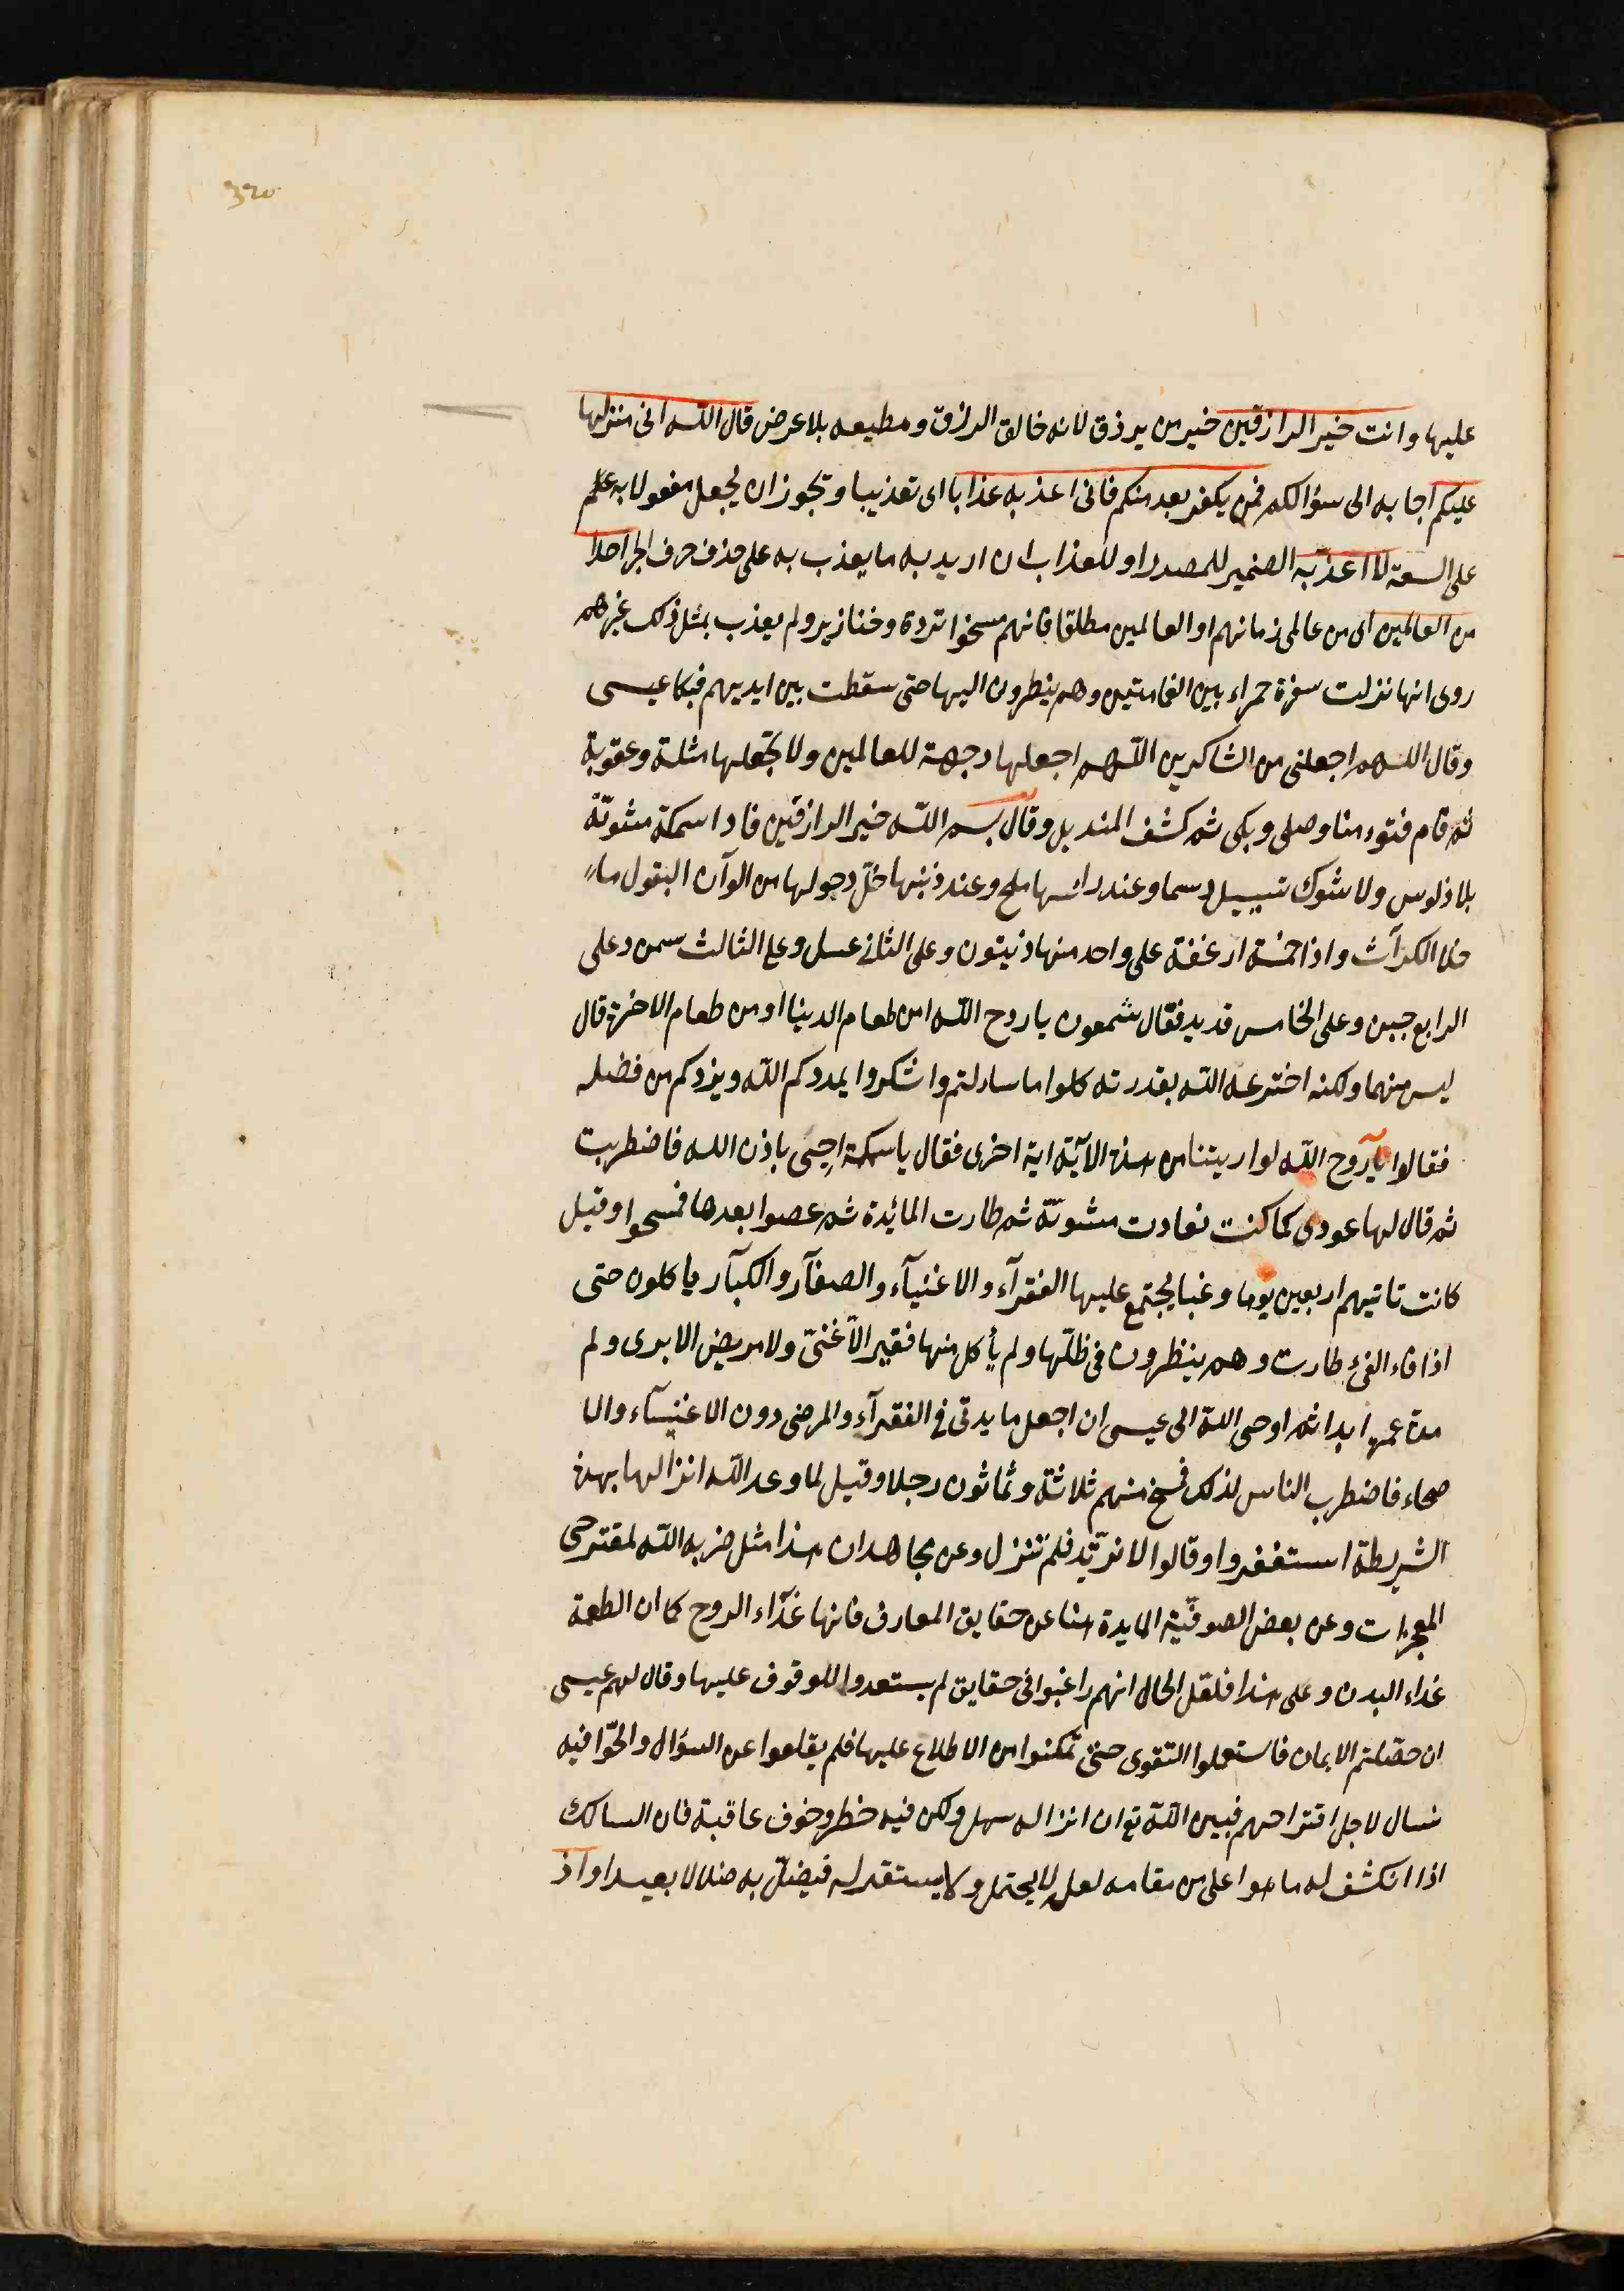 320
عليها وانت خير الرازقين خير من يرزق لانه خالق الرزق ومطيعه بلا عرض قال الله انى منزلها
عليكم اجابه الى سؤالكم فمن يكفر بعد منكم فانى اعذبه عذابا اى تعذيبا ويجوز ان يجعل مفعولا به على
على السعة لا اعذبه الضمير للمصدر او للعذاب ان اريد به ما يعذب به على حذف حرف الجر احدا
من العالمين اى من عالمى زمانهم او العالمين مطلقا فانهم مسخوا قردة وخنازير ولم يعذب بمثل ذلك غيرهم
روى انها نزلت سفرة حمراء بين الغمامتين وهم ينظرون اليها حتى سقطت بين ايديهم فبكا عيسى
وقال اللهم اجعلنى من الشاكرين اللهم اجعلها رحمة للعالمين ولا تجعلها مثلة وعقوبة
ثم قام فتوضا وصلى وبكى ثم كشف المنديل وقال بسم الله خير الرازقين فاذا سمكة مشويّة
بلا فلوس ولا شوك تسيل دسما وعند راسها ملح وعند ذنبها خلّ وحولها من الوان البقول ما
خلا الكرّاث واذا خمسة ارغفة على واحد منها زيتون وعلى الثانى عسل وعلى الثالث سمن وعلى
الرابع جبن وعلى الخامس قديد فقال شمعون يا روح الله امن طعام الدنيا او من طعام الاخرة قال
ليس منهما ولكنه اخترعه الله بقدرته كلوا ما سالتم واشكروا يمددكم الله ويزدكم من فضله
فقالوا يا روح الله لو اريتنا من هذه الآية اية اخرى فقال يا سمكة احيى باذن الله فاضطربت
ثم قال لها عودى كما كنت فعادت مشويّة ثم طارت المائدة ثم عصوا بعدها فمسخوا وقيل
كانت تاتيهم اربعين يوما وغبا يجتمع عليها الفقرآء والاغنيآء والصغآر والكبآر ياكلون حتى
اذا فاء الفئ طارت وهم ينظرون فى ظلّها ولم يأكل منها فقير الّا غنىّ ولا مريض الا برى ولم
مدة عمره ابدا ثم اوحى الله الى عيسى ان اجعل مايدتى فى الفقرآء والمرضى دون الاغنيآء والا
صحاء فاضطرب الناس لذلك فمسخ منهم ثلاثة وثمانون رجلا وقيل لما وعد الله انزالها بهذه
الشريطة استغفروا وقالوا لا نريد فلم تنزل وعن مجاهد ان هذا مثل ضربه الله لمقترحى
المعجزات وعن بعض الصوفيّة المايدة هنا عن حقايق المعارف فانها غذآء الروح كما ان الاطعمة
غذاء البدن وعلى هذا فلعل الحال انهم راغبوا فى حقايق لم يستعدوا للوقوف عليها وقال لهم عيسى
ان حصّلتم الايمان فاستعملوا التقوى حتى تمكنوا من الاطلاع عليها فلم يقلعوا عن السؤال والحّوا فيه
فسال لاجل اقتراحهم فبين الله تع ان انزاله سهل ولكن فيه خطر وخوف عاقبة فان السالك
اذا انكشف له ما هو اعلى من مقامه لعله لا يحتمله ولا يستقر له فيضلّ به ضلالا بعيدا واذ